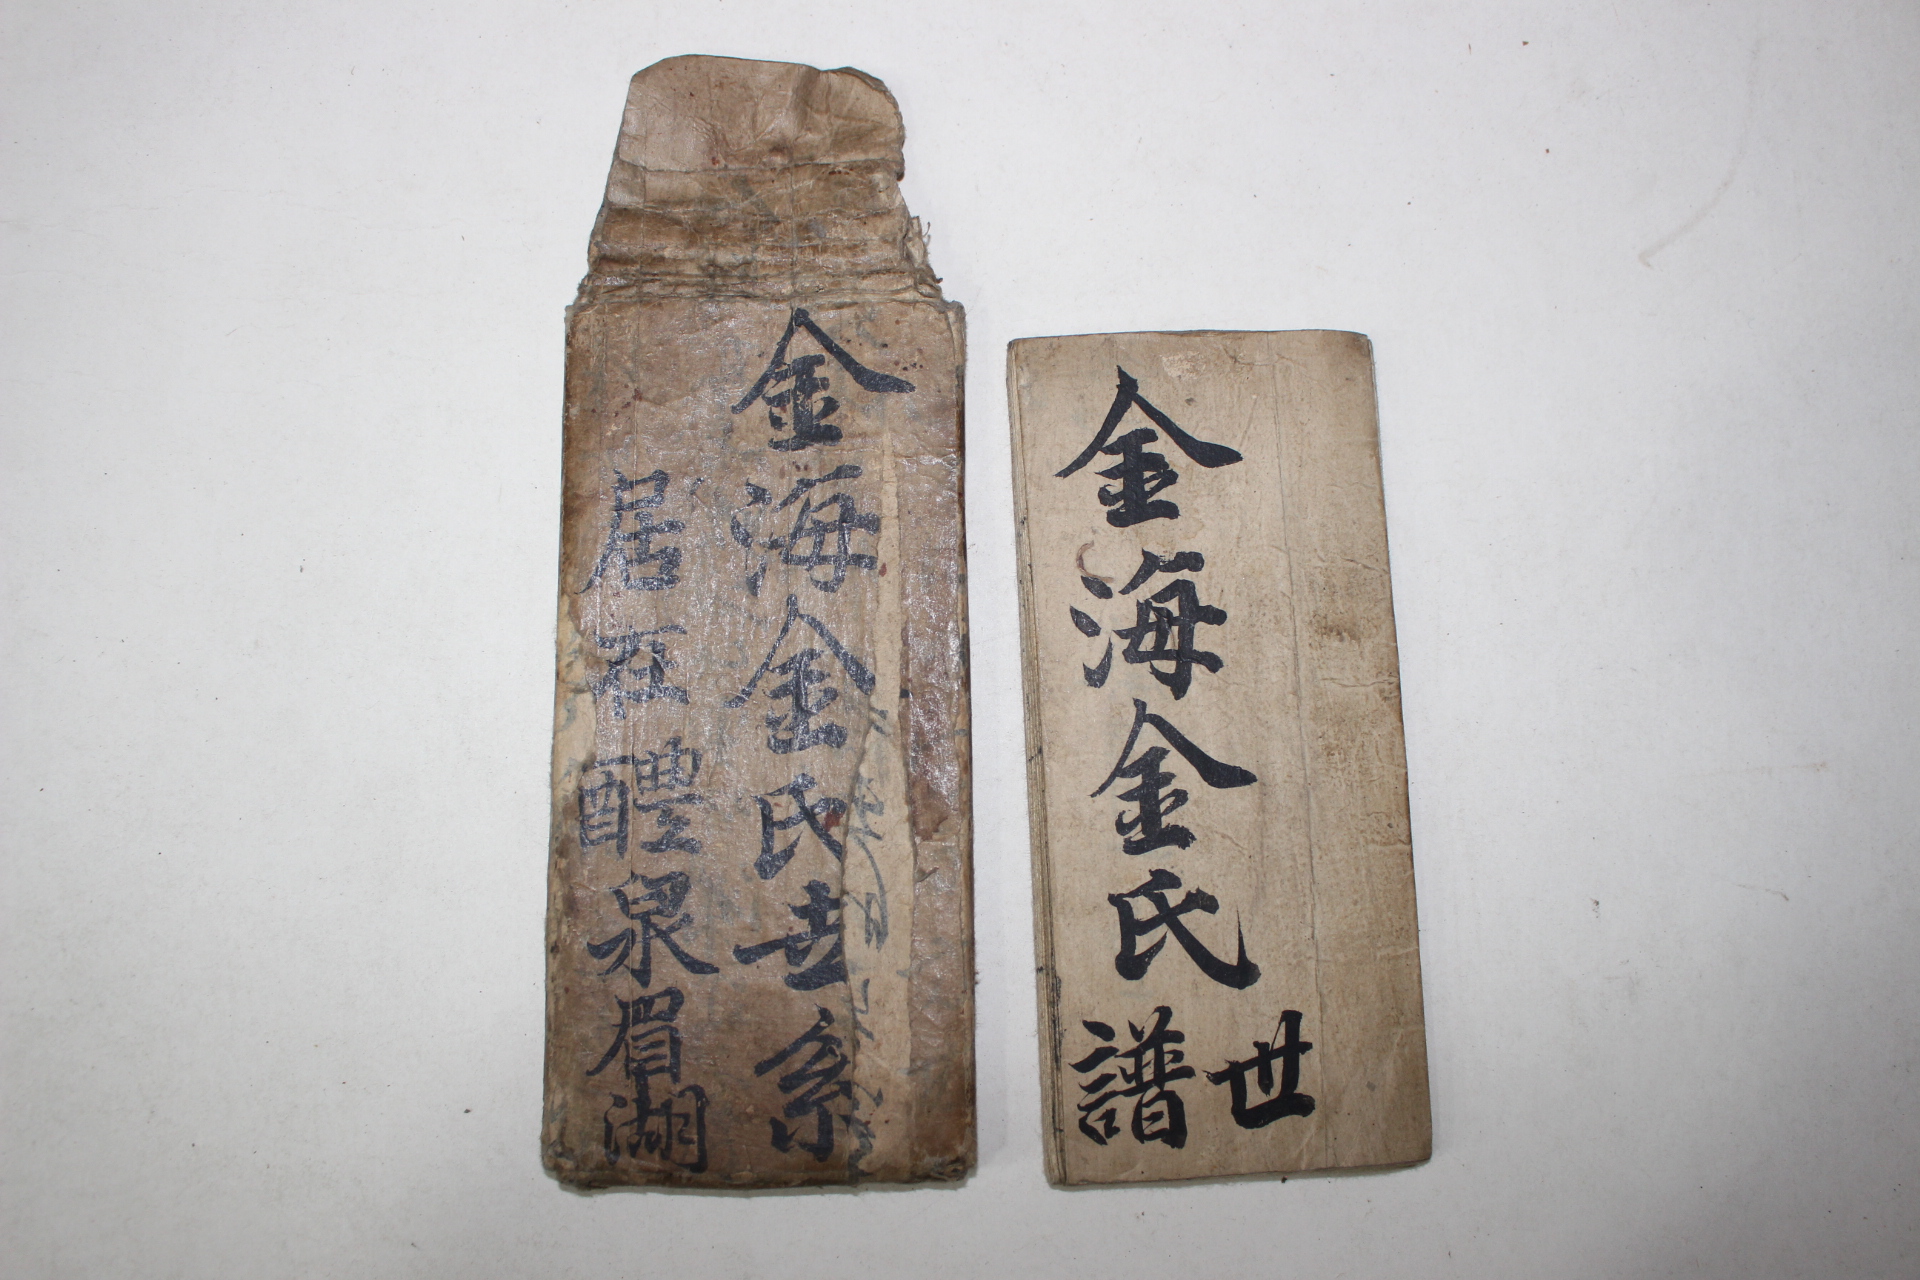 金海金氏世系
居在醴泉眉湖
金海金氏世譜